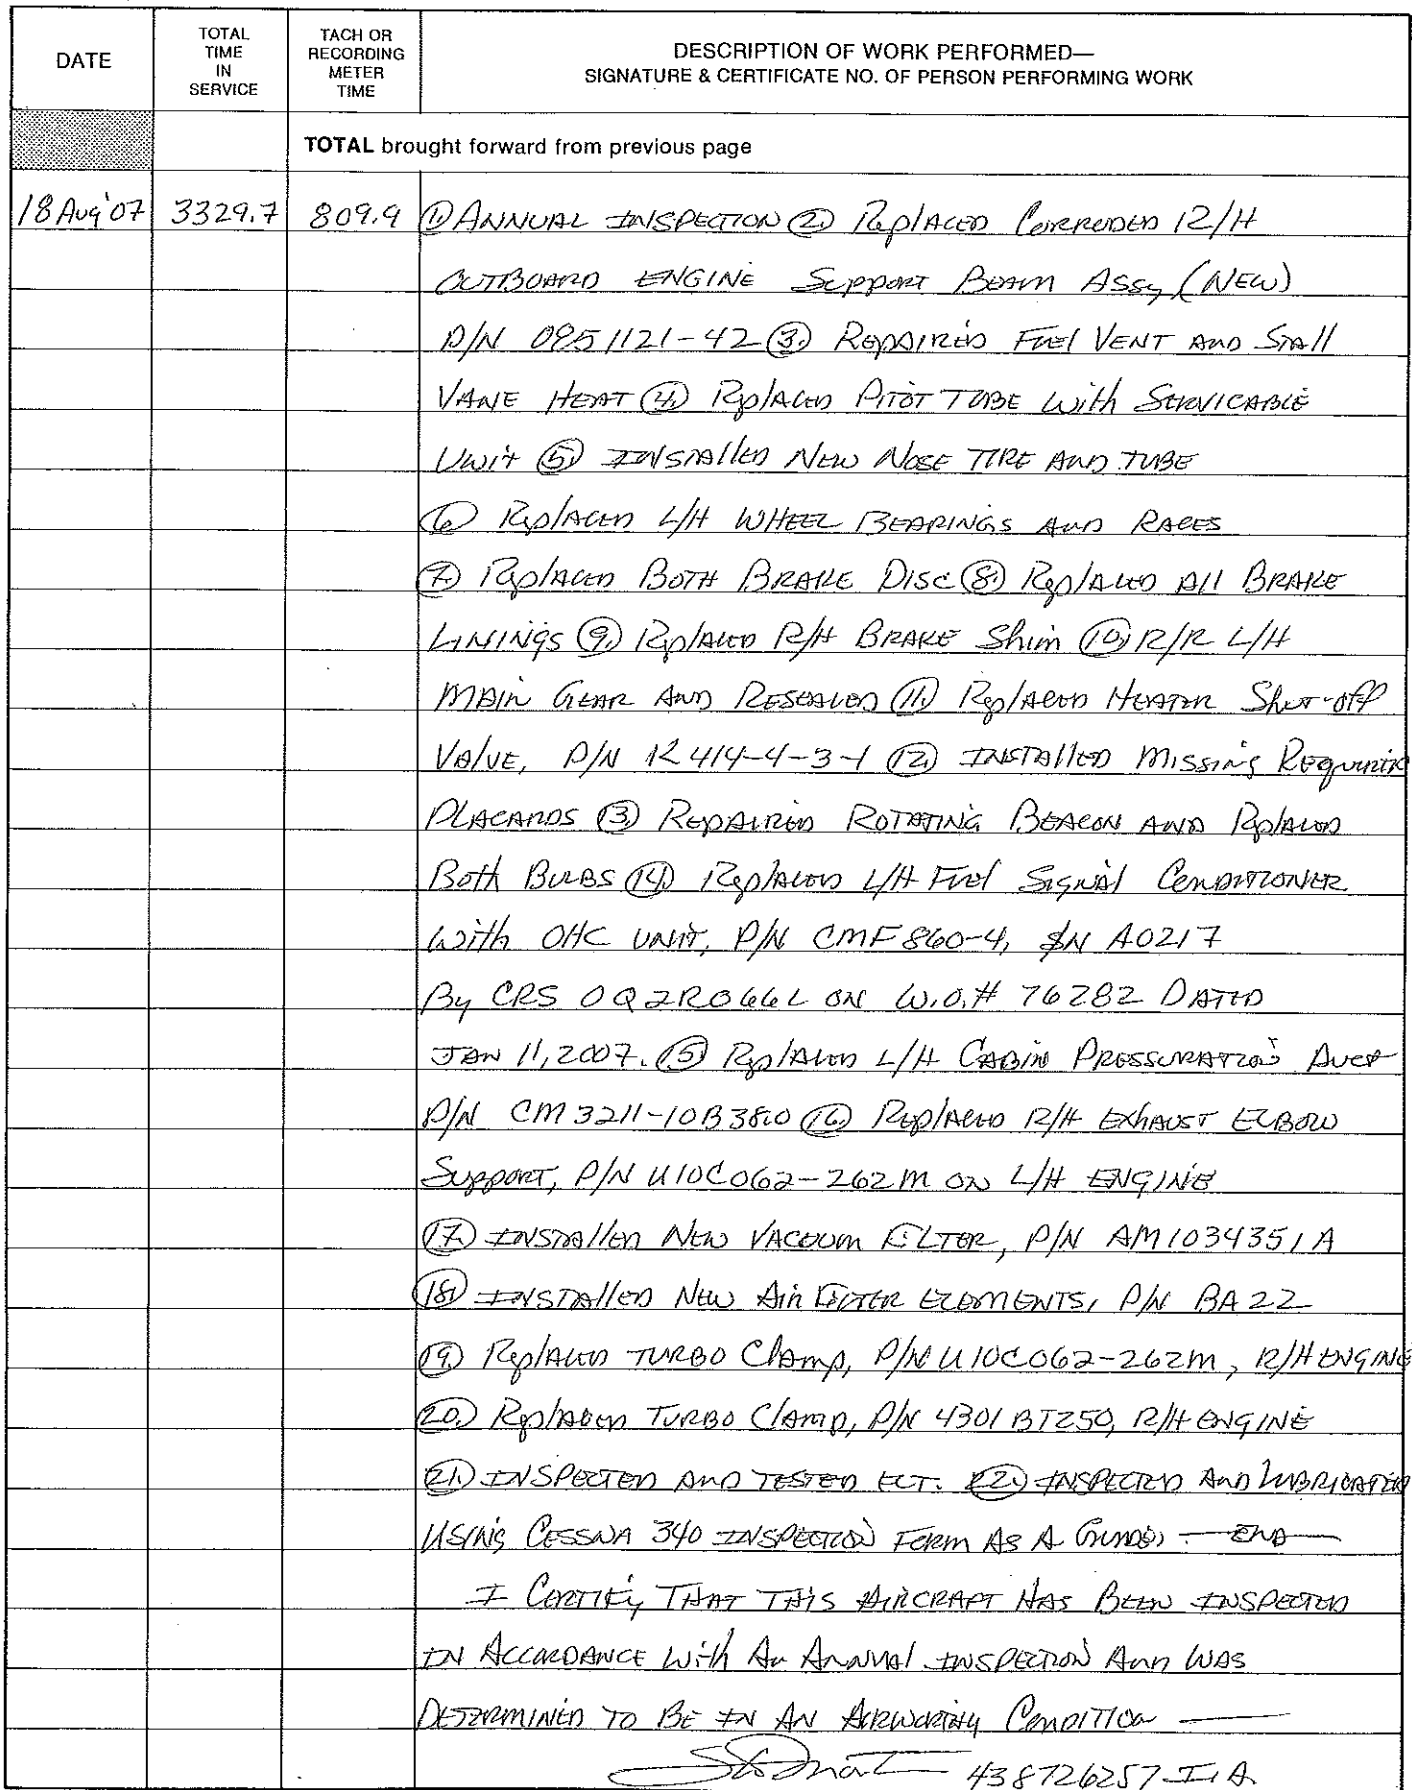 DATE
TOTAL TIME IN SERVICE
TACH OR RECORDING METER TIME
DESCRIPTION OF WORK PERFORMED—
SIGNATURE & CERTIFICATE NO. OF PERSON PERFORMING WORK
TOTAL brought forward from previous page
18 Aug '07 3329.7 809.9 (1.) ANNUAL INSPECTION (2.) Replaced Corroded R/H
OUTBOARD ENGINE Support Beam Assy (NEW)
P/N 0951121-42 (3.) REPAIRED Fuel VENT AND Stall
VANE HEAT (4.) Replaced PITOT TUBE With SERVICABLE
Unit (5) INSTAllED NEW NOSE TIRE AND TUBE
(6) Replaced L/H WHEEL BEARINGS AND RACES
(7.) Replaced BOTH BRAKE DISC (8.) Replaced All BRAKE
LININgS (9.) Replaced R/H BRAKE Shim (10.) R/R L/H
MAIN GEAR AND RESEALED (11.) Replaced HEATER Shut-off
VAlVE, P/N 12414-4-3-1 (12.) INSTAllED MISSING
PLACARDS (3.) REPAIRED ROTATING BEACON AND Replaced
Both BULBS (14.) Replaced L/H Fuel SIGNAl CONDITIONER
With OHC UNIT, P/N CMF860-4, S/N A0217
By CRS OQ2R066L ON W.O.# 76282 DATED
JAN 11, 2007. (15) Replaced L/H CABIN PRESSURATION DUCT
P/N CM3211-10B3810 (16.) Replaced R/H EXHAUST ELBOW
Support, P/N U10C062-262M ON L/H ENGINE
(17.) INSTAllED NEW VACUUM FILTER, P/N AM1034351A
(18.) INSTAllED NEW Air FILTER ELEMENTS, P/N BA22
(19.) Replaced TURBO Clamp, P/N U10C062-262M, R/H ENGINE
(20.) Replaced TURBO Clamp, P/N 4301BT250, R/H ENGINE
(21.) INSPECTED AND TESTED ELT. (22.) INSPECTED AND LUBRICATED
USING CESSNA 340 INSPECTION FORM AS A GUIDE. — END —
I CERTIFY THAT THIS AIRCRAFT HAS BEEN INSPECTED
IN ACCORDANCE With An ANNUAl INSPECTION AND WAS
DETERMINED TO BE IN AN AIRWORTHY CONDITION —
438726257 IA